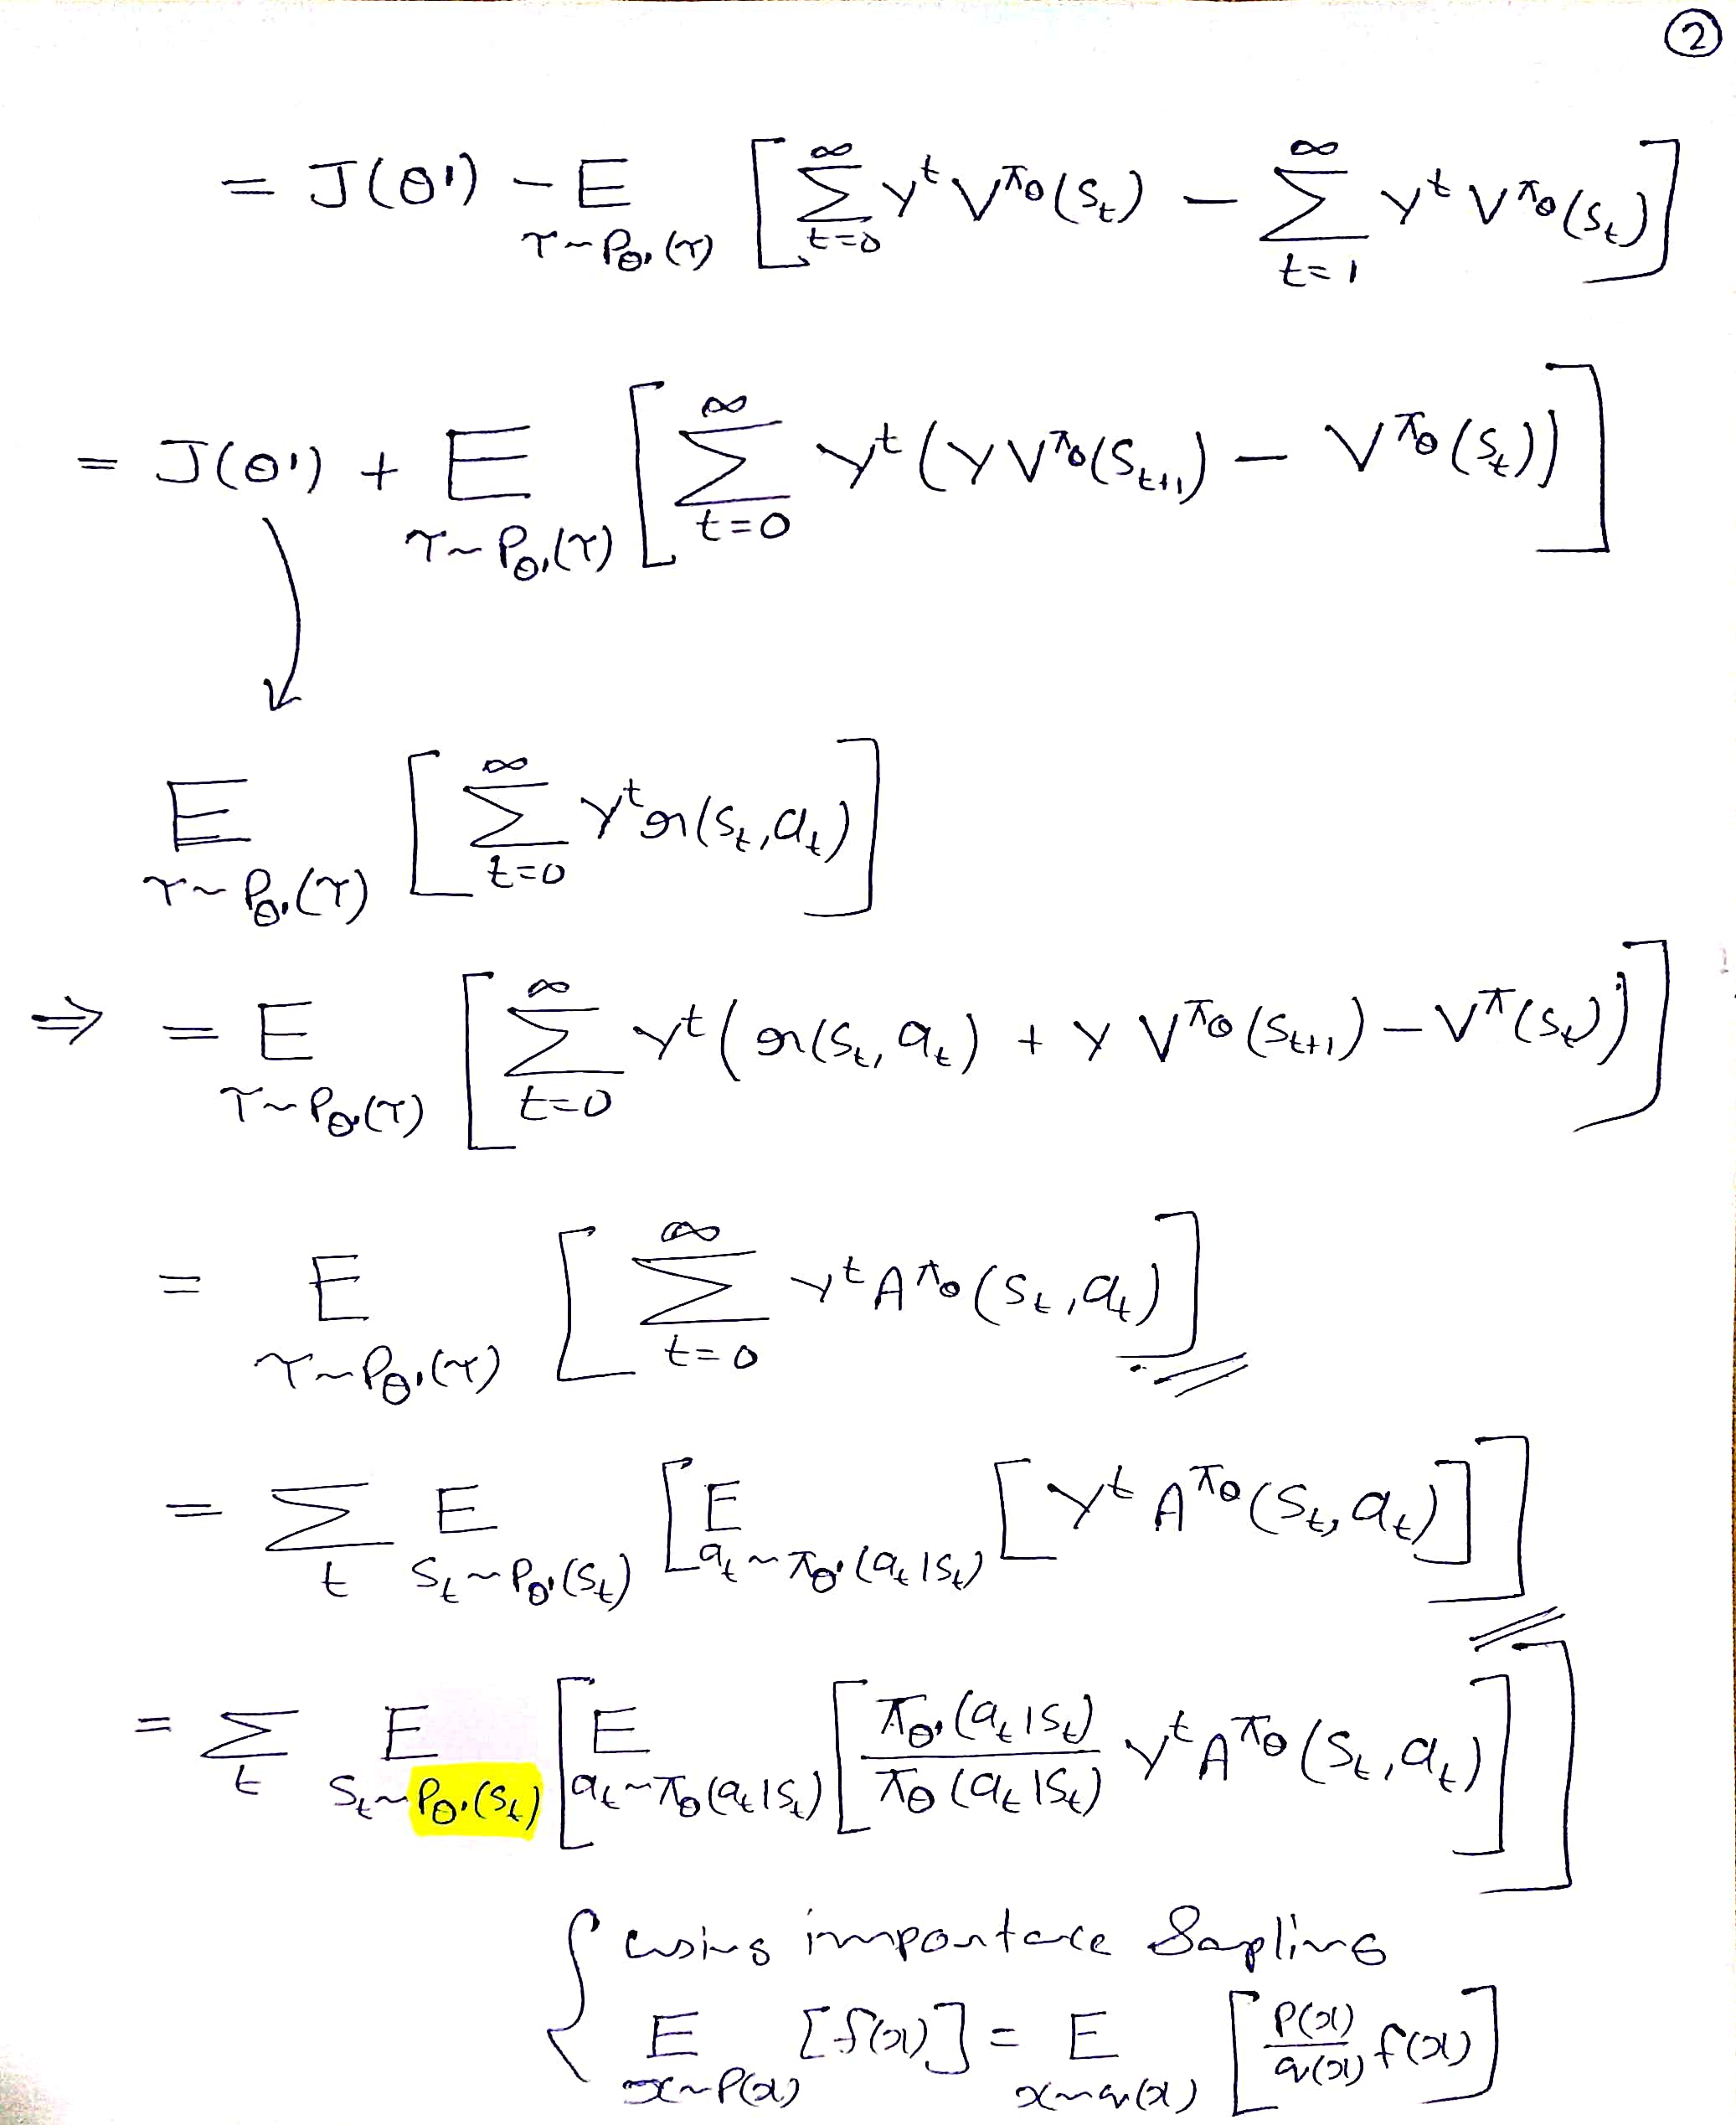 ②
= J(θ') - E_{τ~P_{θ'}(τ)} [ Σ_{t=0}^{∞} γ^t V^{π_θ}(S_t) - Σ_{t=1}^{∞} γ^t V^{π_θ}(S_t) ]
= J(θ') + E_{τ~P_{θ'}(τ)} [ Σ_{t=0}^{∞} γ^t (γ V^{π_θ}(S_{t+1}) - V^{π_θ}(S_t)) ]
E_{τ~P_{θ'}(τ)} [ Σ_{t=0}^{∞} γ^t r(S_t, a_t) ]
⇒ = E_{τ~P_{θ'}(τ)} [ Σ_{t=0}^{∞} γ^t (r(S_t, a_t) + γ V^{π_θ}(S_{t+1}) - V^π(S_t)) ]
= E_{τ~P_{θ'}(τ)} [ Σ_{t=0}^{∞} γ^t A^{π_θ}(S_t, a_t) ]
= Σ_t E_{S_t~P_{θ'}(S_t)} [ E_{a_t~π_{θ'}(a_t|S_t)} [ γ^t A^{π_θ}(S_t, a_t) ] ]
= Σ_t E_{S_t~P_{θ'}(S_t)} [ E_{a_t~π_θ(a_t|S_t)} [ π_{θ'}(a_t|S_t) / π_θ(a_t|S_t) γ^t A^{π_θ}(S_t, a_t) ] ]
{ using importace Sapling
E_{x~P(x)} [f(x)] = E_{x~q(x)} [ P(x)/q(x) f(x) ]